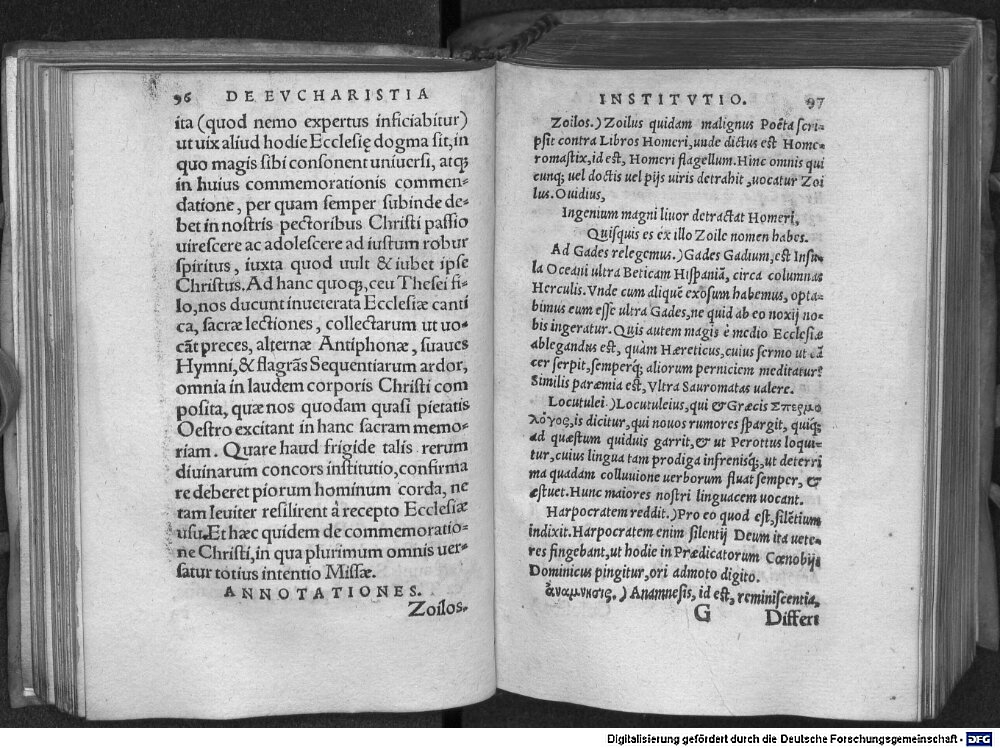 96 DE EVCHARISTIA
ita (quod nemo expertus inficiabitur)
ut uix aliud hodie Ecclesię dogma sit, in
quo magis sibi consonent uniuersi, atq;
in huius commemorationis commen-
datione, per quam semper subinde de-
bet in nostris pectoribus Christi passio
uirescere ac adolescere ad iustum robur
spiritus, iuxta quod uult & iubet ipse
Christus. Ad hanc quoq;, ceu Thesei fi-
lo, nos ducunt inueterata Ecclesiæ canti
ca, sacræ lectiones, collectarum ut uo-
cāt preces, alternæ Antiphonæ, suaues
Hymni, & flagrās Sequentiarum ardor,
omnia in laudem corporis Christi com
posita, quæ nos quodam quasi pietatis
Oestro excitant in hanc sacram memo-
riam. Quare haud frigide talis rerum
diuinarum concors institutio, confirma
re deberet piorum hominum corda, ne
tam leuiter resilirent à recepto Ecclesiæ
usu. Et hæc quidem de commemoratio-
ne Christi, in qua plurimum omnis uer-
satur totius intentio Missæ.
ANNOTATIONES.
Zoilos.
INSTITVTIO. 97
Zoilos.) Zoilus quidam malignus Poëta scri-
psit contra Libros Homeri, unde dictus est Home-
romastix, id est, Homeri flagellum. Hinc omnis qui
cunq; uel doctis uel pijs uiris detrahit, uocatur Zoi
lus. Ouidius,
Ingenium magni liuor detractat Homeri,
Quisquis es ex illo Zoile nomen habes.
Ad Gades relegemus.) Gades Gadium, est Insu-
la Oceani ultra Beticam Hispaniā, circa columnas
Herculis. Vnde cum aliquē exosum habemus, opta-
bimus eum esse ultra Gades, ne quid ab eo noxij no-
bis ingeratur. Quis autem magis è medio Ecclesiæ
ablegandus est, quàm Hæreticus, cuius sermo ut cā
cer serpit, semperq; aliorum perniciem meditatur?
Similis paræmia est, Vltra Sauromatas ualere.
Locutulei.) Locutuleius, qui & Græcis Σπερμο
λόγος, is dicitur, qui nouos rumores spargit, quiq;
ad quæstum quiduis garrit, & ut Perottus loqui-
tur, cuius lingua tam prodiga infrenisq;, ut deterri
ma quadam colluuione uerborum fluat semper, &
æstuet. Hunc maiores nostri linguacem uocant.
Harpocratem reddit.) Pro eo quod est, silētium
indixit. Harpocratem enim silentij Deum ita uete-
res fingebant, ut hodie in Prædicatorum Cœnobijs
Dominicus pingitur, ori admoto digito.
ἀναμνησις.) Anamnesis, id est, reminiscentia,
G Differt
Digitalisierung gefördert durch die Deutsche Forschungsgemeinschaft - DFG